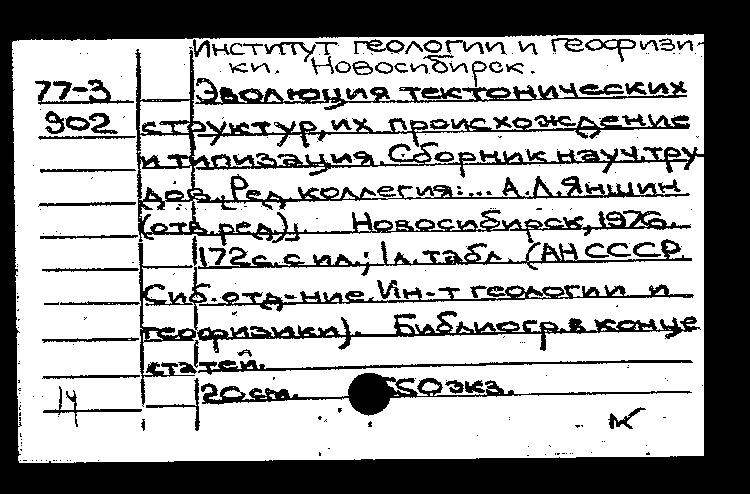 Институт геологии и геофизи-
ки. Новосибирск.
77-3 Эволюция тектонических
902 структур, их происхождение
и типизация. Сборник науч. тру-
дов. Ред. коллегия: ... А.Л. Яншин
(отв. ред.), Новосибирск, 1976.
172 с. с ил.; 1 л. табл. (АН СССР
Сиб. отд-ние. Ин-т геологии и
геофизики). Библиогр. в конце
статей.
14 20 см. 50 экз.